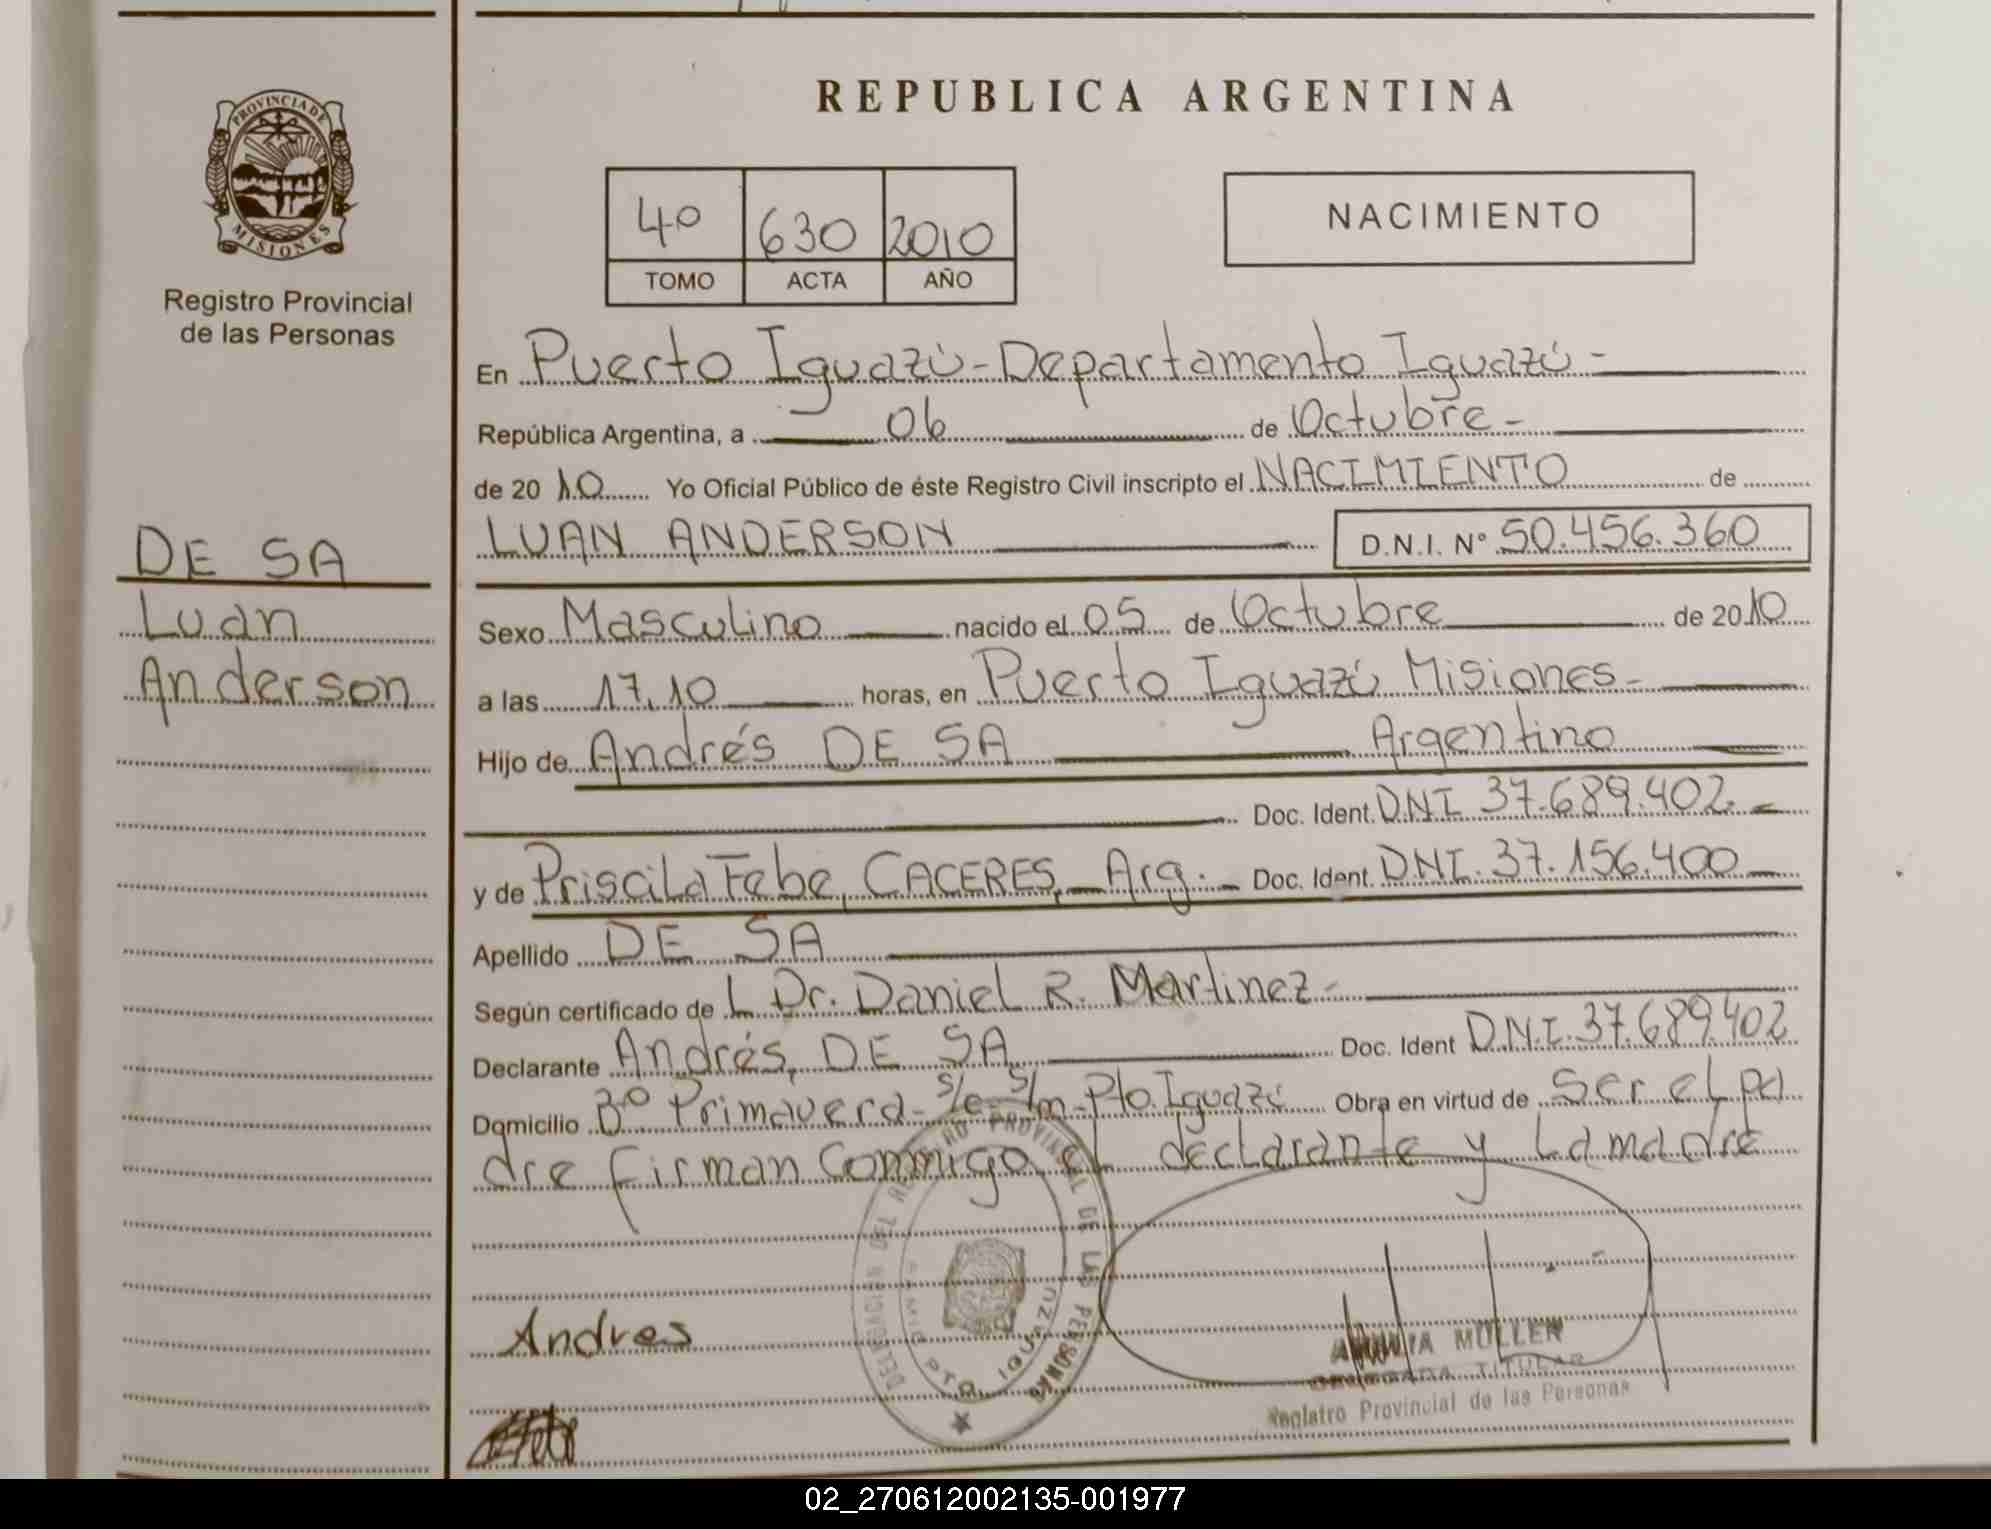 PROVINCIA DE
MISIONES
Registro Provincial
de las Personas
DE SA
Luan
Anderson
REPUBLICA ARGENTINA
4º 630 2010
TOMO ACTA AÑO
NACIMIENTO
En Puerto Iguazú - Departamento Iguazú -
República Argentina, a 06 de Octubre -
de 2010 Yo Oficial Público de éste Registro Civil inscripto el NACIMIENTO de
LUAN ANDERSON D.N.I. Nº 50.456.360
Sexo Masculino nacido el 05 de Octubre de 2010
a las 17.10 horas, en Puerto Iguazú Misiones -
Hijo de Andrés DE SA Argentino
Doc. Ident. DNI 37.689.402. -
y de Priscila Febe, CACERES, - Arg. - Doc. Ident. DNI. 37.156.400 -
Apellido DE SA
Según certificado de L Dr. Daniel R. Martinez -
Declarante Andrés, DE SA Doc. Ident D.N.I. 37.689.402
Domicilio Bº Primavera - s/e - s/m - Pto. Iguazú Obra en virtud de Ser el pa
dre firman Conmigo el declarante y La madre
DELEGACION DEL REGISTRO PROVINCIAL DE LAS PERSONAS
PTO. IGUAZU
Andres
MULLER
TITULAR
Registro Provincial de las Personas
02_270612002135-001977